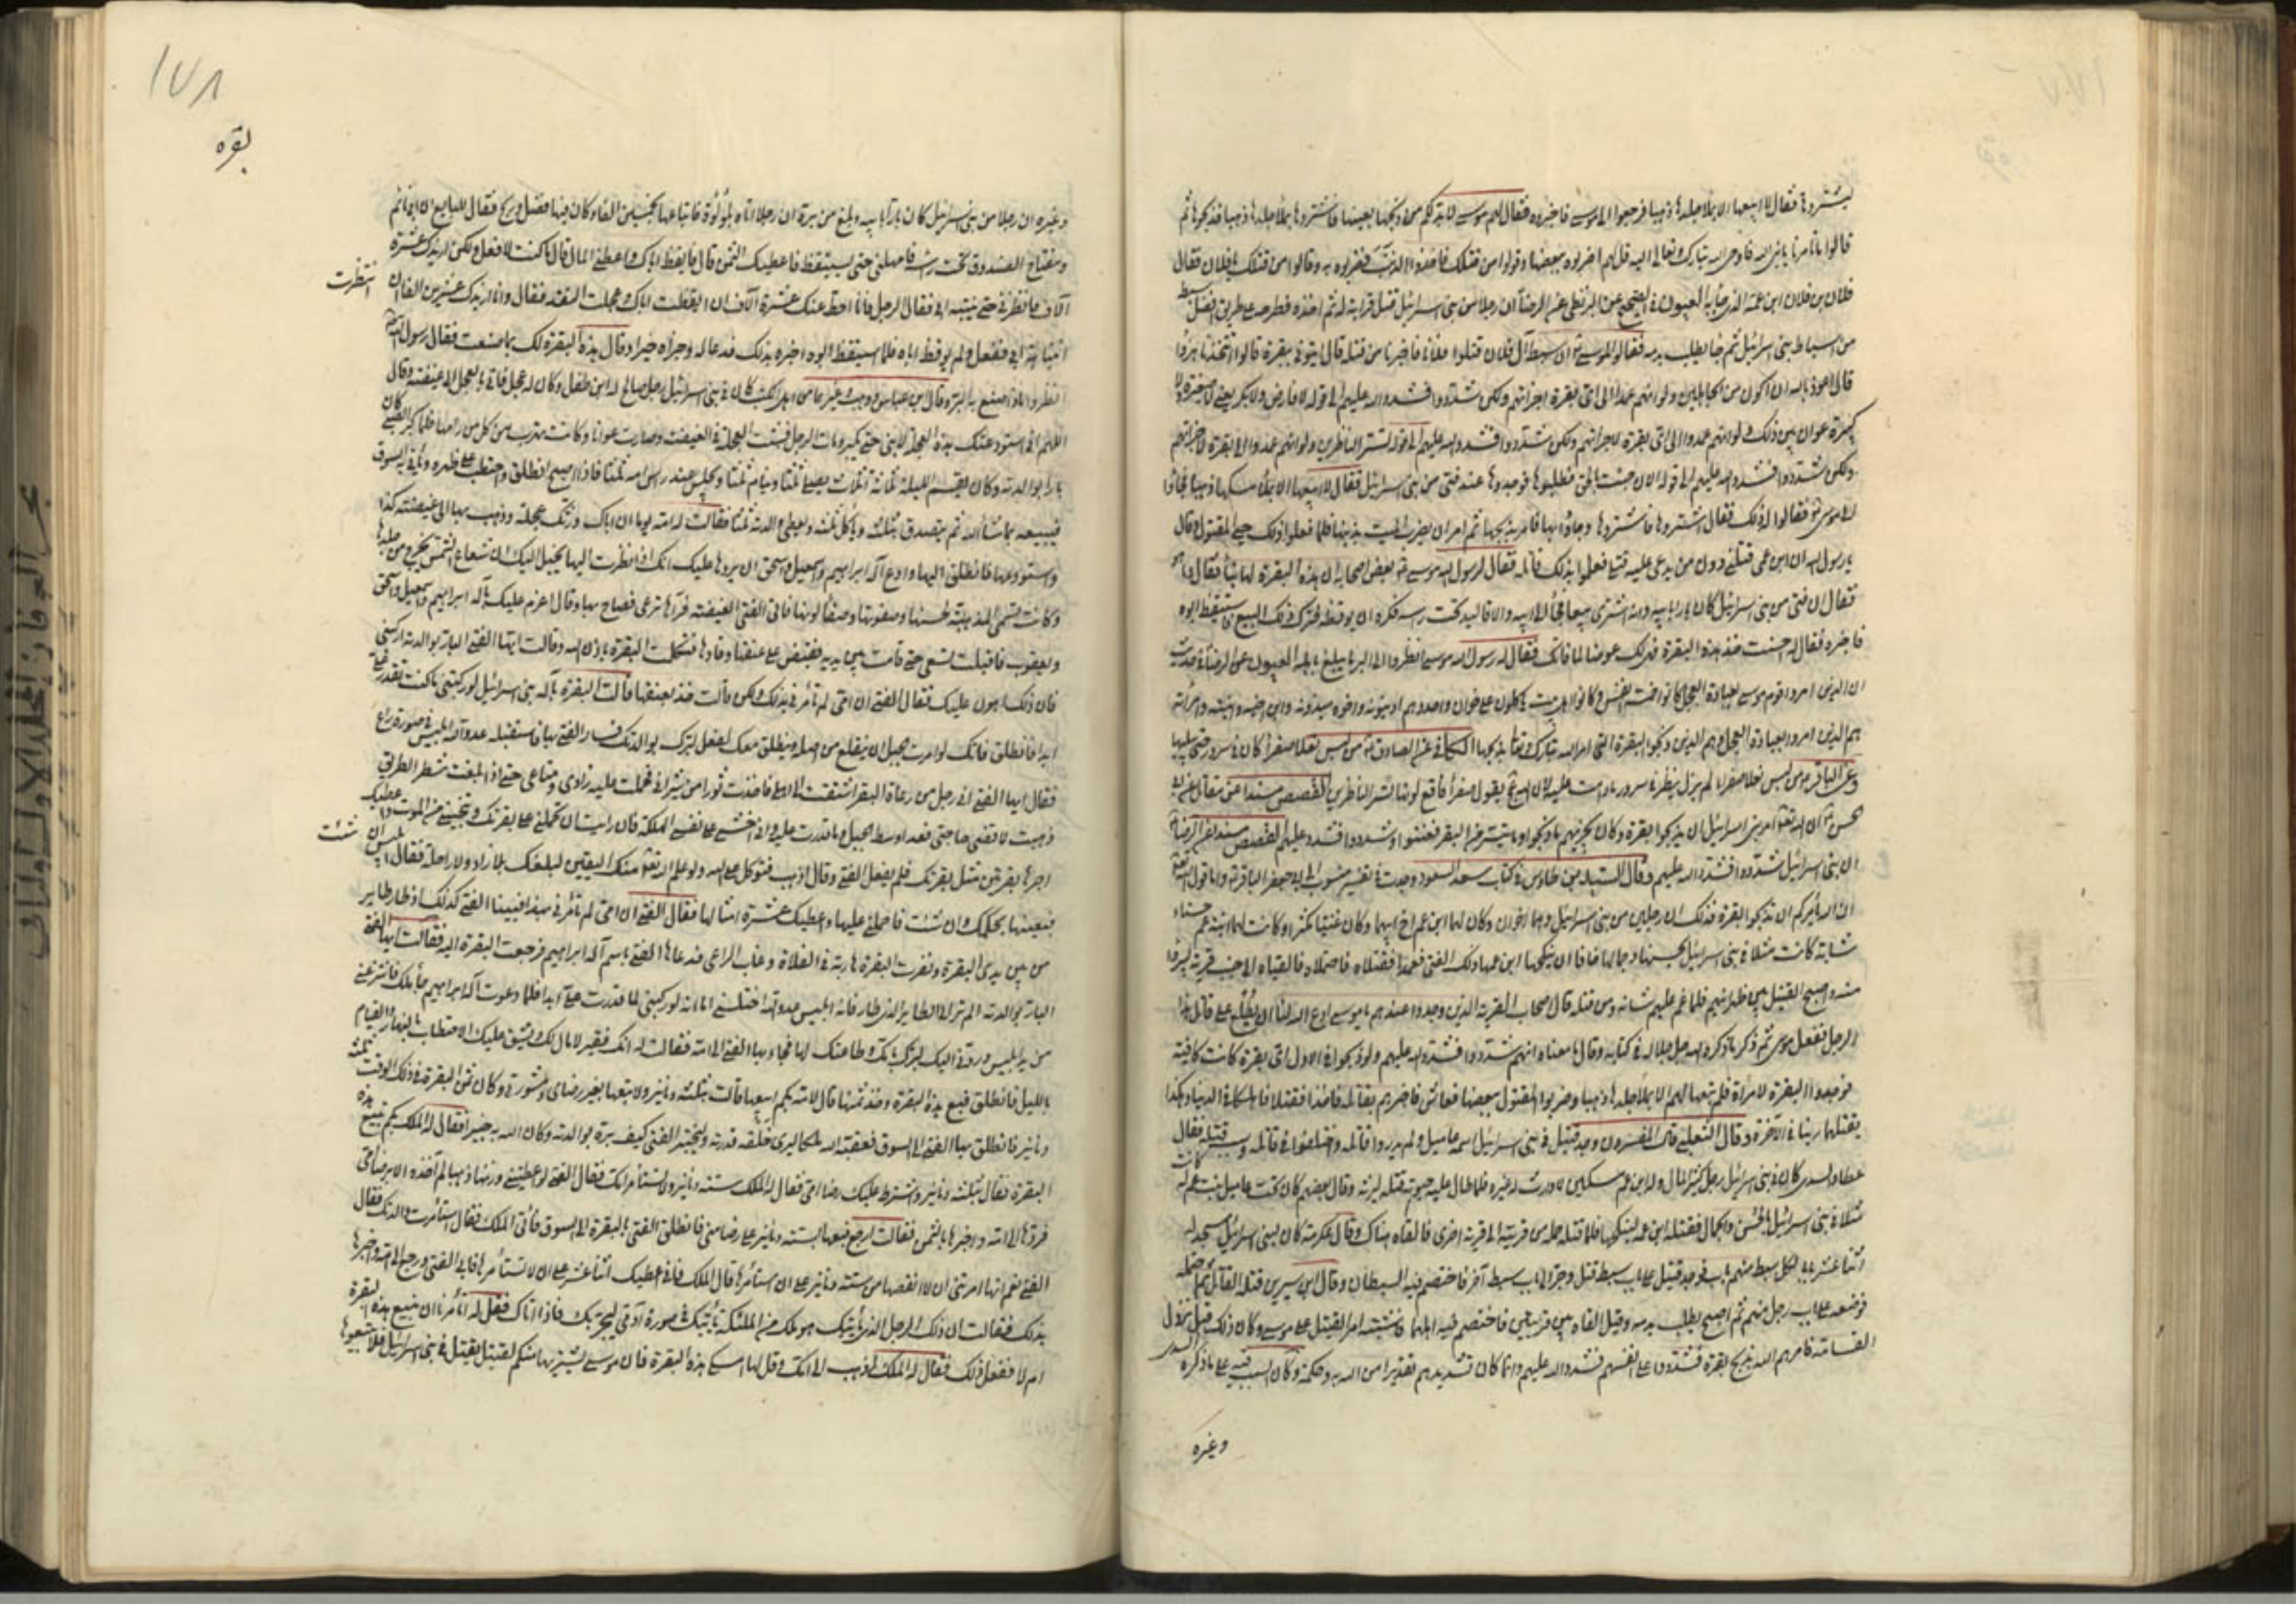 ليشتروها فقال لا ابيعها الا بملأ جلدها ذهبا فرجعوا الى موسى فاخبروه فقال لهم موسى لا بد لكم من ذبحها بعينها فاشتروها بملأ جلدها ذهبا فذبحوها ثم
قالوا ما تأمرنا يا نبي الله فاوحى الله تبارك وتعالى اليه قل لهم اضربوه ببعضها وقولوا من قتلك فاخذوا الذنب فضربوه به وقالوا من قتلك يا فلان فقال
فلان بن فلان ابن عمه الذي جاء به العيون في الصحيح عن البزنطي عن الرضا ان رجلا من بني اسرائيل قتل قرابة له ثم اخذه فطرحه على طريق افضل سبط
من اسباط بني اسرائيل ثم جاء يطلب بدمه فقالوا لموسى ان سبط آل فلان قتلوا فلانا فاخبرنا من قتله قال ايتوني ببقرة قالوا اتتخذنا هزوا
قال اعوذ بالله ان اكون من الجاهلين ولو انهم عمدوا الى اي بقرة اجزأتهم ولكن شددوا فشدد الله عليهم الى قوله لا فارض ولا بكر يعني لا صغيرة ولا
كبيرة عوان بين ذلك ولو انهم عمدوا الى اي بقرة لاجزأتهم ولكن شددوا فشدد الله عليهم الى قوله تسر الناظرين ولو انهم عمدوا الى بقرة لاجزأتهم
ولكن شددوا فشدد الله عليهم الى قوله الان جئت بالحق فطلبوها فوجدوها عند فتى من بني اسرائيل فقال لا ابيعها الا بملأ مسكها ذهبا فجاؤا
الى موسى فقالوا له ذلك فقال اشتروها فاشتروها وجاؤا بها فامر بذبحها ثم امر ان يضرب الميت بذنبها فلما فعلوا ذلك حيي المقتول وقال
يا رسول الله ان ابن عمي قتلني دون من يدعى عليه قتلي فعلموا بذلك قاتله فقال لرسول الله موسى بعض اصحابه ان هذه البقرة لها نبأ فقال وما هو
فقال ان فتى من بني اسرائيل كان بارا بابيه وانه اشترى بيعا فجاء الى ابيه والاقاليد تحت رأسه فكره ان يوقظه فترك ذلك البيع فاستيقظ ابوه
فاخبره فقال له احسنت خذ هذه البقرة فهي لك عوضا لما فاتك فقال له رسول الله موسى انظروا الى البر ما يبلغ باهله العيون عن الرضا في حديث
ان الذين امروا قوم موسى بعبادة العجل كانوا خمسة انفس وكانوا اهل بيت يأكلون على خوان واحد وهم اذينوه واخوه ميذونه وابن اخيه وابنته وامرأته
هم الذين امروا بعبادة العجل وهم الذين ذبحوا البقرة التي امر الله تبارك وتعالى بذبحها الكافي عن الصادق من لبس نعلا صفراء كان في سرور حتى يبليها
وعن الباقر من لبس نعلا صفراء لم يزل ينظر في سرور ما دامت عليه لان الله يقول صفراء فاقع لونها تسر الناظرين القصص مسندا عن مقاتل عن ابي
الحسن ان الله تعالى امر بني اسرائيل ان يذبحوا بقرة وكان يجزيهم ما ذبحوا وما تيسر من البقر فعنتوا وشددوا فشدد عليهم القصص مسندا عن الرضا
ان بني اسرائيل شددوا فشدد الله عليهم وقال السيد بن طاوس في كتاب سعد السعود وجدت في تفسير منسوب الى ابي جعفر الباقر واما قول الله تعالى
ان الله يأمركم ان تذبحوا بقرة فذلك ان رجلين من بني اسرائيل وهما اخوان وكان لهما ابن عم اخ ابيهما وكان غنيا مكثرا وكانت لهما ابنة عم حسناء
شابة كانت مثلا في بني اسرائيل بحسنها وجمالها خافا ان ينكحها ابن عمها ذلك الغني فعمدا فقتلاه فاحتملاه فالقياه الى جنب قرية ليبرؤا
منه واصبح القتيل بين ظهرانيهم فلما غم عليهم شأنه ومن قتله قال اصحاب القرية الذين وجدوا عندهم يا موسى ادع الله لنا ان يطلع على قاتل هذا
الرجل ففعل موسى ثم ذكر ما ذكره الله جل جلاله في كتابه وقال ما معناه انهم شددوا فشدد الله عليهم ولو ذبحوا في الاول اي بقرة كانت كافية
فوجدوا البقرة لامرأة فلم تبعها لهم الا بملأ جلدها ذهبا وضربوا المقتول ببعضها فعاش فاخبرهم بقاتله فاخذا فقتلا فاهلكا في الدنيا وهكذا
يقتلهما ربنا في الآخرة وقال الثعلبي قال المفسرون وجد قتيل في بني اسرائيل اسمه عاميل ولم يدروا قاتله واختلفوا في قاتله وسبب قتله فقال
عطا والسدي كان في بني اسرائيل رجل كثير المال وله ابن عم مسكين لا وارث له غيره فلما طال عليه حيوته قتله ليرثه وقال بعضهم كان تحت عاميل بنت عم له كانت
مثلا في بني اسرائيل بالحسن والجمال فقتله ابن عمه لينكحها فلما قتله حمله من قريته الى قرية اخرى فالقاه هناك وقال عكرمة كان لبني اسرائيل مسجد له
اثنا عشر بابا لكل سبط منهم باب فوجد قتيل على باب سبط قتل وجر الى باب سبط آخر فاختصم فيه السبطان وقال ابن سيرين قتله القاتل ثم احتمله
فوضعه على باب رجل منهم ثم اصبح يطلب بدمه وقيل القاه بين قريتين فاختصم فيه اهلهما فاشتبه امر القتيل على موسى وكان ذلك قبل نزول
القسامة فامرهم الله بذبح بقرة فشددوا على انفسهم فشدد الله عليهم وانما كان تشديدهم تقديرا من الله به وحكمة وكان السبب فيه على ما ذكره السدي
وغيره
١٧٨
بقره
وغيره ان رجلا من بني اسرائيل كان بارا بابيه وبلغ من بره ان رجلا اتاه بلؤلؤة فابتاعها بخمسين الفا وكان فيها فضل وربح فقال للبايع ان ابي نائم
ومفتاح الصندوق تحت رأسه فامهلني حتى يستيقظ فاعطيك الثمن قال فايقظ اباك واعطني المال قال ما كنت لافعل ولكن ازيدك عشرة
آلاف فانظرني حتى ينتبه ابي فقال الرجل فانا احط عنك عشرة آلاف ان ايقظت اباك وعجلت النقد فقال وانا ازيدك عشرين الفا ان
انتظرت
انتباه ابي ففعل ولم يوقظ اباه فلما استيقظ ابوه اخبره بذلك فدعا له وجزاه خيرا وقال هذه البقرة لك بما صنعت فقال رسول الله
انظروا ماذا صنع به البر وقال ابن عباس ووهب وغيرهما من اهل الكتب كان في بني اسرائيل رجل صالح له ابن طفل وكان له عجل فاتى بالعجل الى غيضة وقال
اللهم اني استودعتك هذه العجلة لابني حتى يكبر ومات الرجل فشبت العجلة في الغيضة وصارت عوانا وكانت تهرب من كل من رامها فلما كبر الصبي كان
بارا بوالدته وكان يقسم الليلة ثلاثة اثلاث يصلي ثلثا وينام ثلثا ويجلس عند رأس امه ثلثا فاذا اصبح انطلق واحتطب على ظهره ويأتي به السوق
فيبيعه بما شاء الله ثم يتصدق بثلثه ويأكل ثلثه ويعطي والدته ثلثا فقالت له امه يوما ان اباك ورثك عجلة وذهب بها الى غيضة كذا
واستودعها فانطلق اليها وادع آله ابراهيم واسمعيل واسحق ان يردها عليك انك اذا نظرت اليها يخيل اليك ان شعاع الشمس يخرج من جلدها
وكانت تسمى المذهبة لحسنها وصفوتها وصفاء لونها فاتى الفتى الغيضة فرآها ترعى فصاح بها وقال اعزم عليك بآله ابراهيم واسمعيل واسحق
ويعقوب فاقبلت تسعى حتى قامت بين يديه فقبض على عنقها وقادها فتكلمت البقرة باذن الله وقالت ايها الفتى البار بوالدته اركبني
فان ذلك اهون عليك فقال الفتى ان امي لم تأمرني بذلك ولكن قالت خذ بعنقها قالت البقرة بآله بني اسرائيل لو ركبتني ما كنت تقدر علي
ابدا فانطلق فانك لو امرت الجبل ان ينقلع من اصله وينطلق معك لفعل لبرك بوالدتك فسار الفتى بها فاستقبله عدو الله ابليس في صورة راع
فقال ايها الفتى اني رجل من رعاة البقر اشتقت الى اهلي فاخذت ثورا من ثيراني فحملت عليه زادي ومتاعي حتى اذا بلغت شطر الطريق
ذهبت لاقضي حاجتي فعدا وسط الجبل وما قدرت عليه واني اخشى على نفسي الهلكة فان رايت ان تحملني على بقرتك وتنجيني من الموت واعطيك
اجرها بقرتين مثل بقرتك فلم يفعل الفتى وقال اذهب فتوكل على الله ولو علم الله تعالى منك اليقين لبلغك بلا زاد ولا راحلة فقال ابليس ان شئت
فبعنيها بحكمك وان شئت فاحملني عليها واعطيك عشرة امثالها فقال الفتى ان امي لم تأمرني بهذا فبينا الفتى كذلك اذ طار طاير
من بين يدي البقرة ونفرت البقرة هاربة في الفلاة وغاب الراعي فدعاها الفتى باسم آله ابراهيم فرجعت البقرة اليه فقالت ايها الفتى
البار بوالدته الم تر الى الطاير الذي طار فانه ابليس عدو الله اختلسني اما انه لو ركبني لما قدرت علي ابدا فلما دعوت آله ابراهيم جاء ملك فانتزعني
من يد ابليس وردني اليك لبرك بامك وطاعتك لها فجاء بها الفتى الى امه فقالت له انك فقير لا مال لك ويشق عليك الاحتطاب بالنهار والقيام
بالليل فانطلق فبع هذه البقرة وخذ ثمنها قال لامه بكم ابيعها قالت بثلثة دنانير ولا تبعها بغير رضاي ومشورتي وكان ثمن البقرة في ذلك الوقت ثلثة
دنانير فانطلق بها الفتى الى السوق فعقبه الله ملكا ليري خلقه قدرته وليختبر الفتى كيف بره بوالدته وكان الله به خبيرا فقال له الملك بكم تبيع هذه
البقرة فقال بثلثة دنانير واشترط عليك رضا امي فقال له الملك ستة دنانير ولا تستأمر امك فقال الفتى لو اعطيتني وزنها ذهبا لم آخذه الا برضا امي
فردها الى امه واخبرها بالثمن فقالت ارجع فبعها بستة دنانير على رضا مني فانطلق الفتى بالبقرة الى السوق فأتى الملك فقال استأمرت والدتك فقال
الفتى نعم انها امرتني ان لا انقصها من ستة دنانير على ان استأمرها قال الملك فاني اعطيك اثنا عشر على ان لا تستأمرها فابى الفتى ورجع الى امه واخبرها
بذلك فقالت ان ذلك الرجل الذي يأتيك هو ملك من الملئكة يأتيك في صورة آدمي ليجربك فاذا اتاك فقل له أتأمرنا ان نبيع هذه البقرة
ام لا ففعل ذلك فقال له الملك اذهب الى امك وقل لها امسكي هذه البقرة فان موسى يشتريها منكم لقتيل يقتل في بني اسرائيل فلا تبيعوها